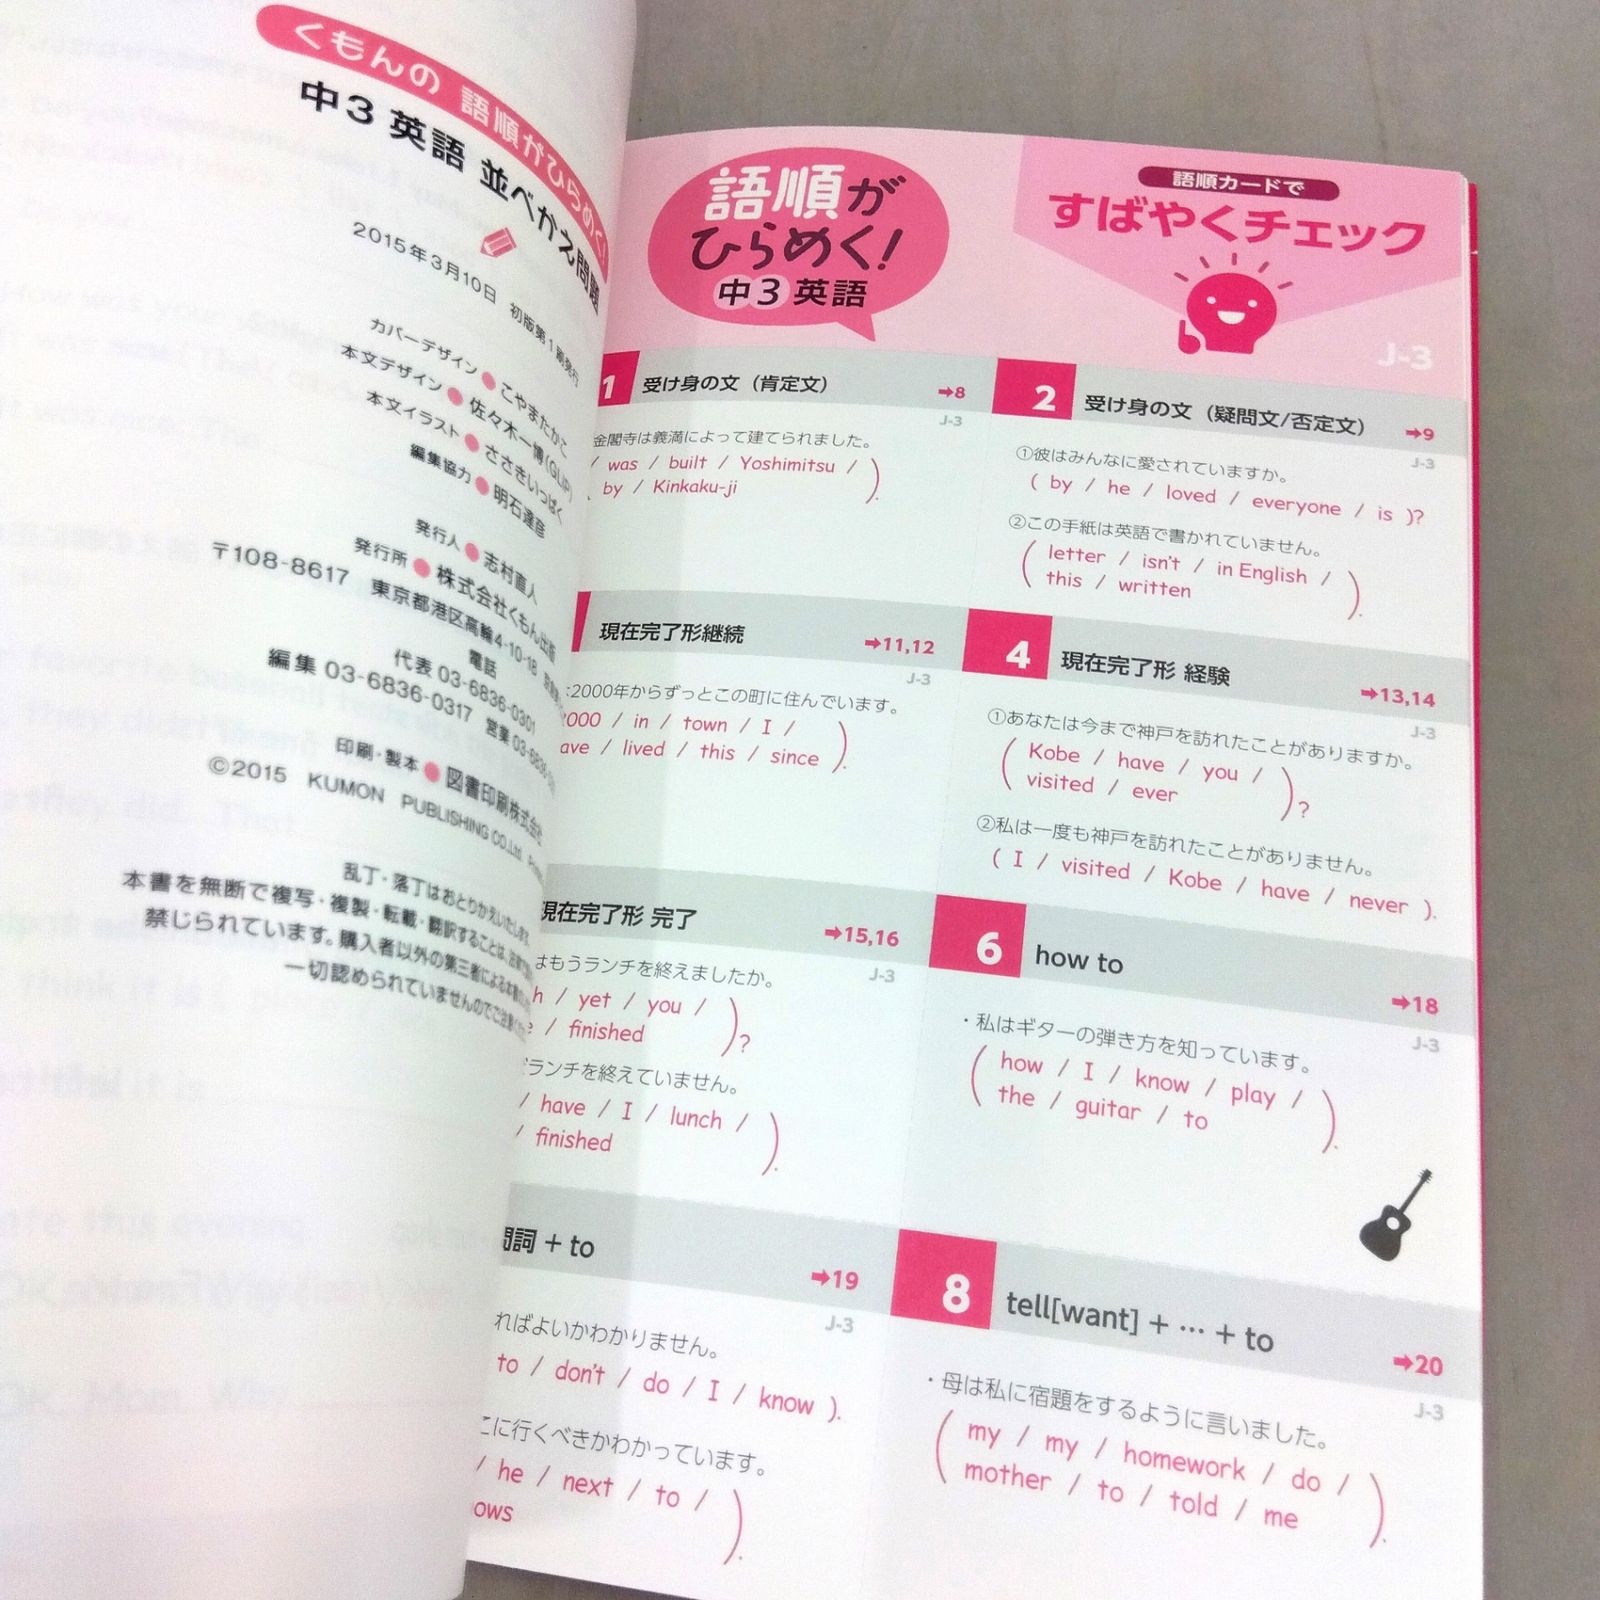 くもんの 語順がひらめく!
中3 英語 並べかえ問題
2015年3月10日 初版第1刷発行
カバーデザイン ● こやまたかこ
本文デザイン ● 佐々木一博(GLIP)
本文イラスト ● ささきいっぱく
編集協力 ● 明石達彦
発行人 ● 志村直人
発行所 ● 株式会社くもん出版
〒108-8617 東京都港区高輪4-10-18
電話
代表 03-6836-0301
編集 03-6836-0317 営業
印刷・製本 ● 図書印刷株式会社
©2015 KUMON PUBLISHING CO.,Ltd
乱丁・落丁はおとりかえいたします。
本書を無断で複写・複製・転載・翻訳することは、
禁じられています。購入者以外の第三者による
一切認められていませんのでご注意
語順が
ひらめく!
中3 英語
語順カードで
すばやくチェック
J-3
1 受け身の文(肯定文) ➡8
J-3
金閣寺は義満によって建てられました。
/ was / built / Yoshimitsu /
by / Kinkaku-ji ).
2 受け身の文(疑問文/否定文) ➡9
J-3
①彼はみんなに愛されていますか。
( by / he / loved / everyone / is )?
②この手紙は英語で書かれていません。
( letter / isn't / in English /
this / written ).
現在完了形継続 ➡11,12
J-3
2000年からずっとこの町に住んでいます。
/ in / town / I /
/ lived / this / since ).
4 現在完了形 経験 ➡13,14
J-3
①あなたは今まで神戸を訪れたことがありますか。
( Kobe / have / you /
visited / ever )?
②私は一度も神戸を訪れたことがありません。
( I / visited / Kobe / have / never ).
現在完了形 完了 ➡15,16
J-3
はもうランチを終えましたか。
/ yet / you /
/ finished )?
ランチを終えていません。
/ have / I / lunch /
/ finished ).
6 how to ➡18
J-3
・私はギターの弾き方を知っています。
( how / I / know / play /
the / guitar / to ).
問詞 + to ➡19
J-3
ればよいかわかりません。
to / don't / do / I / know ).
こに行くべきかわかっています。
/ he / next / to /
ows ).
8 tell[want] + … + to ➡20
J-3
・母は私に宿題をするように言いました。
( my / my / homework / do /
mother / to / told / me ).